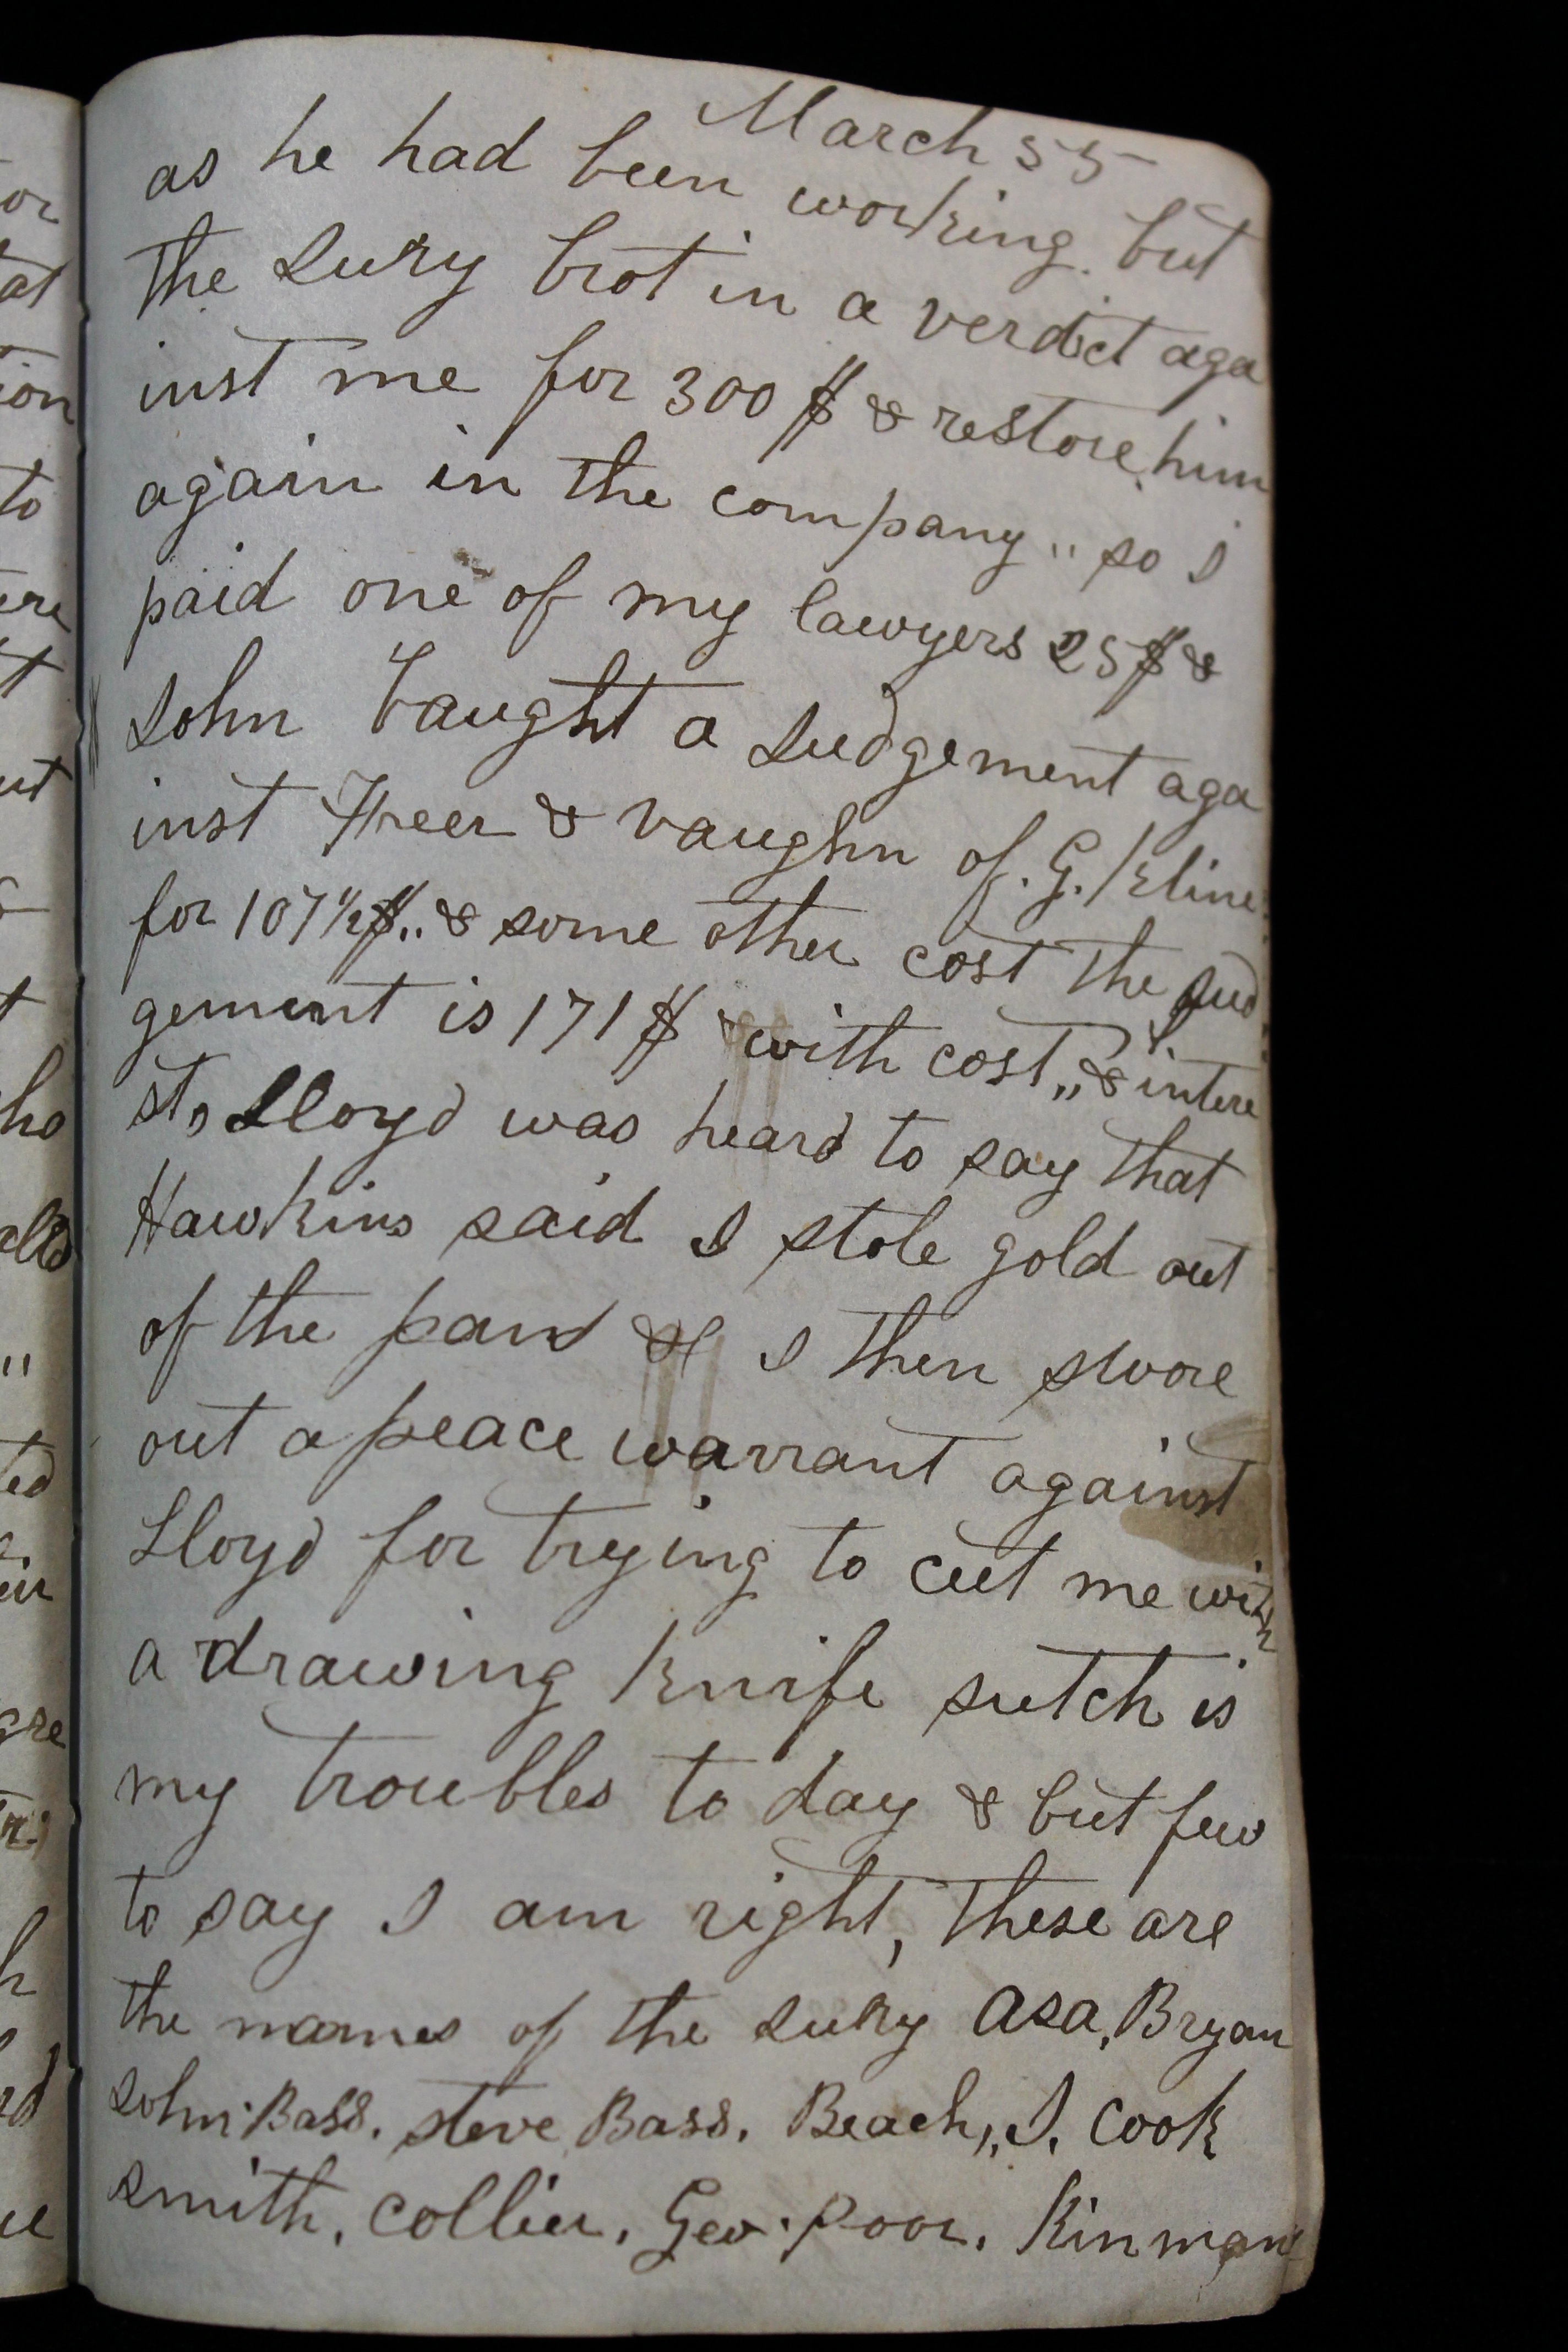 March 55
as he had been working. but
the Jury brot in a verdict aga
inst me for 300 $ & restore him
again in the company,, so I
paid one of my lawyers 25$ &
John baught a Judgement aga
inst Freer & vaughn of. G. Kline
for 107½$,, & some other cost the Jud
gement is 171 $ with cost,, & intere
st, Lloyd was heard to say that
Hawkins said I stole gold out
of the pans & I then swore
out a peace warrant against
Lloyd for trying to cut me with
a drawing knife sutch is
my troubles to day & but few
to say I am right, these are
the names of the Jury Asa, Bryan
John Bass. steve Bass. Beach,,. J. Cook
smith. Collier. Geo. Poor. Kinman